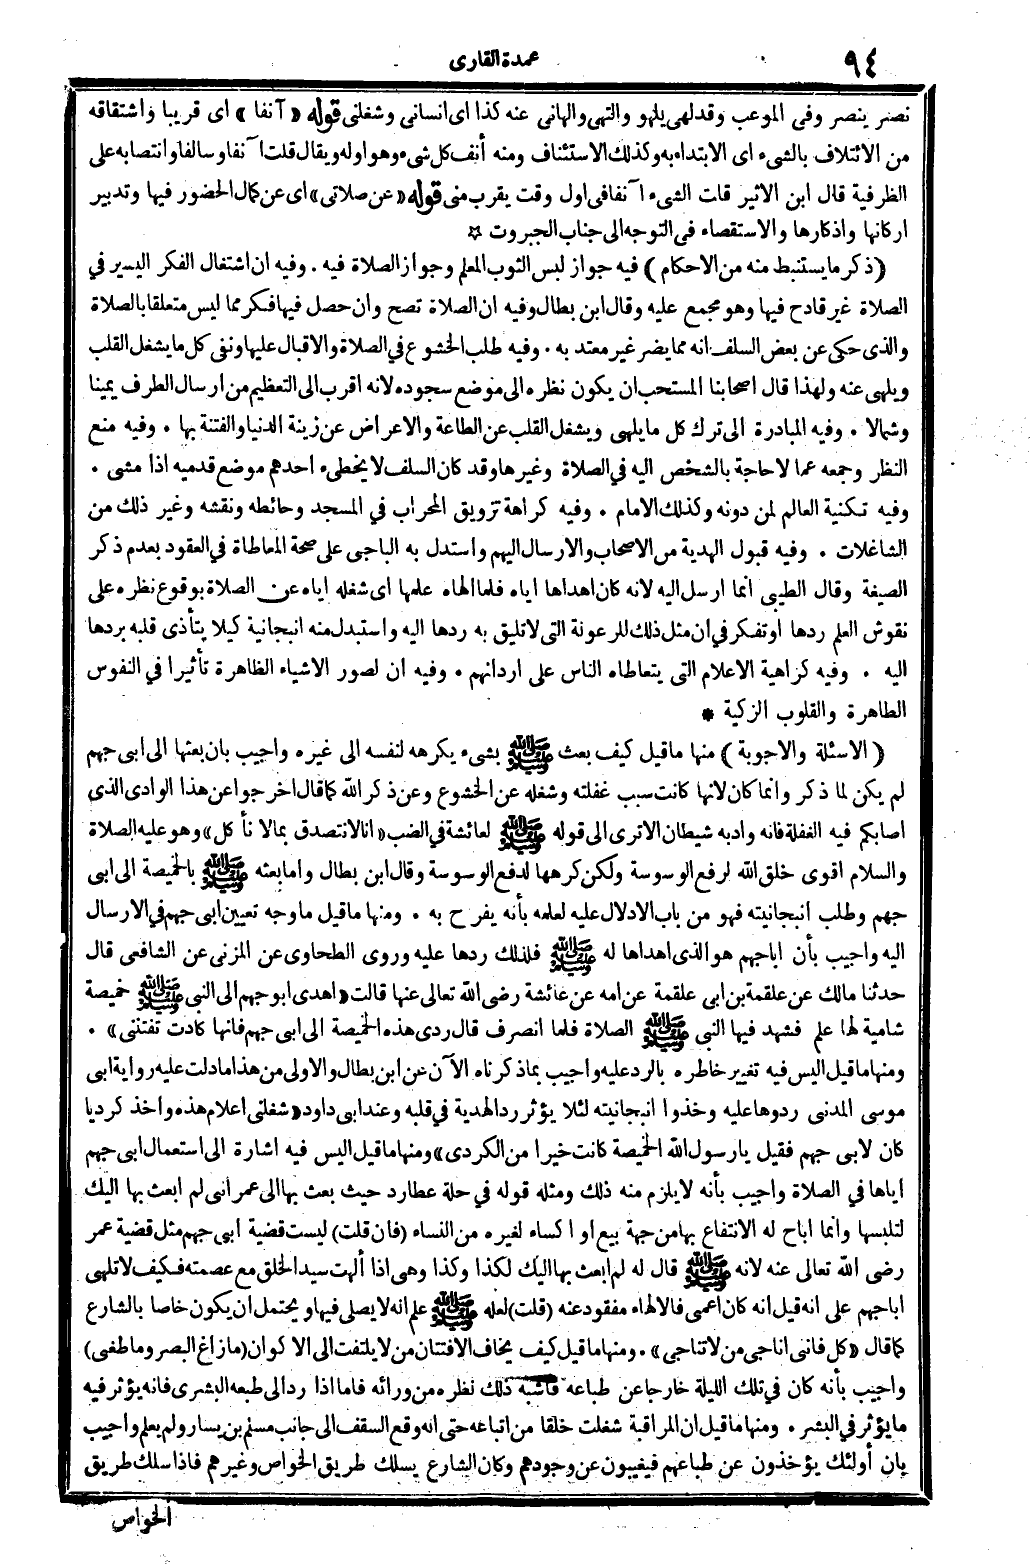 ٩٤
عمدة القارى
نصر ينصر وفى الموعب وقدلهى يلهو والتهى والهانى عنه كذا اى انسانى وشغلنى قوله «آنفا» اى قريبا واشتقاقه
من الائتلاف بالشىء اى الابتداء به وكذلك الاستئناف ومنه أنف كل شىء وهو اوله ويقال قلت آنفا وسالفا وانتصابه على
الظرفية قال ابن الاثير قلت الشىء آنفا فى اول وقت يقرب منى قوله «عن صلاتى» اى عن كمال الحضور فيها وتدبير
اركانها واذكارها والاستقصاء فى التوجه الى جناب الجبروت ☆
(ذكر ما يستنبط منه من الاحكام) فيه جواز لبس الثوب المعلم وجواز الصلاة فيه . وفيه ان اشتغال الفكر اليسير في
الصلاة غير قادح فيها وهو مجمع عليه وقال ابن بطال وفيه ان الصلاة تصح وان حصل فيها فكر مما ليس متعلقا بالصلاة
والذى حكى عن بعض السلف انه مما يضر غير معتد به . وفيه طلب الخشوع في الصلاة والاقبال عليها ونفى كل ما يشغل القلب
ويلهى عنه ولهذا قال اصحابنا المستحب ان يكون نظره الى موضع سجوده لانه اقرب الى التعظيم من ارسال الطرف يمينا
وشمالا . وفيه المبادرة الى ترك كل ما يلهى ويشغل القلب عن الطاعة والاعراض عن زينة الدنيا والفتنة بها . وفيه منع
النظر وجمعه عما لا حاجة بالشخص اليه في الصلاة وغيرها وقد كان السلف لا يخطىء احدهم موضع قدميه اذا مشى .
وفيه تكنية العالم لمن دونه وكذلك الامام . وفيه كراهة تزويق المحراب في المسجد وحائطه ونقشه وغير ذلك من
الشاغلات . وفيه قبول الهدية من الاصحاب والارسال اليهم واستدل به الباجى على صحة المعاطاة في العقود بعدم ذكر
الصيغة وقال الطيبى انما ارسل اليه لانه كان اهداها اياه فلما الهاه علمها اى شغله اياه عن الصلاة بوقوع نظره على
نقوش العلم ردها او تفكر في ان مثل ذلك للرعونة التى لا تليق به ردها اليه واستبدل منه انبجانية كيلا يتأذى قلبه بردها
اليه . وفيه كراهية الاعلام التى يتعاطاه الناس على اردانهم . وفيه ان لصور الاشياء الظاهرة تأثيرا في النفوس
الطاهرة والقلوب الزكية *
(الاسئلة والاجوبة) منها ما قيل كيف بعث ﷺ بشىء يكرهه لنفسه الى غيره واجيب بان بعثها الى ابى جهم
لم يكن لما ذكر وانما كان لانها كانت سبب غفلته وشغله عن الخشوع وعن ذكر الله كما قال اخرجوا عن هذا الوادى الذى
اصابكم فيه الغفلة فانه واد به شيطان الا ترى الى قوله ﷺ لعائشة في الضب «انا لا نتصدق بما لا نأكل» وهو عليه الصلاة
والسلام اقوى خلق الله لرفع الوسوسة ولكن كرهها لدفع الوسوسة وقال ابن بطال واما بعثه ﷺ بالخميصة الى ابى
جهم وطلب انبجانيته فهو من باب الادلال عليه لعلمه بأنه يفرح به . ومنها ما قيل ما وجه تعيين ابى جهم في الارسال
اليه واجيب بأن ابا جهم هو الذى اهداها له ﷺ فلذلك ردها عليه وروى الطحاوى عن المزنى عن الشافعى قال
حدثنا مالك عن علقمة بن ابى علقمة عن امه عن عائشة رضى الله تعالى عنها قالت «اهدى ابو جهم الى النبى ﷺ خميصة
شامية لها علم فشهد فيها النبى ﷺ الصلاة فلما انصرف قال ردى هذه الخميصة الى ابى جهم فانها كادت تفتننى» .
ومنها ما قيل اليس فيه تغيير خاطره بالرد عليه واجيب بما ذكرناه الآن عن ابن بطال والاولى من هذا ما دلت عليه رواية ابى
موسى المدنى ردوها عليه وخذوا انبجانيته لئلا يؤثر رد الهدية في قلبه وعند ابى داود «شغلنى اعلام هذه واخذ كرديا
كان لابى جهم فقيل يا رسول الله الخميصة كانت خيرا من الكردى» ومنها ما قيل اليس فيه اشارة الى استعمال ابى جهم
اياها في الصلاة واجيب بأنه لا يلزم منه ذلك ومثله قوله في حلة عطارد حيث بعث بها الى عمر انى لم ابعث بها اليك
لتلبسها وانما اباح له الانتفاع بها من جهة بيع او اكساء لغيره من النساء (فان قلت) ليست قضية ابى جهم مثل قضية عمر
رضى الله تعالى عنه لانه ﷺ قال له لم ابعث بها اليك لكذا وكذا وهى اذا ألهت سيد الخلق مع عصمته فكيف لا تلهى
ابا جهم على انه قيل انه كان اعمى فالالهاء مفقود عنه (قلت) لعله ﷺ علم انه لا يصلى فيها ويحتمل ان يكون خاصا بالشارع
كما قال «كل فانى اناجى من لا تناجى» . ومنها ما قيل كيف يخاف الافتتان من لا يلتفت الى الاكوان (ما زاغ البصر وما طغى)
واجيب بأنه كان في تلك الليلة خارجا عن طباعه فاشبه ذلك نظره من ورائه فاما اذا رد الى طبعه البشرى فانه يؤثر فيه
ما يؤثر في البشر . ومنها ما قيل ان المراقبة شغلت خلقا من اتباعه حتى انه وقع السقف الى جانب مسلم بن يسار ولم يعلم واجيب
بان أولئك يؤخذون عن طباعهم فيغيبون عن وجودهم وكان الشارع يسلك طريق الخواص وغيرهم فاذا سلك طريق
الخواص